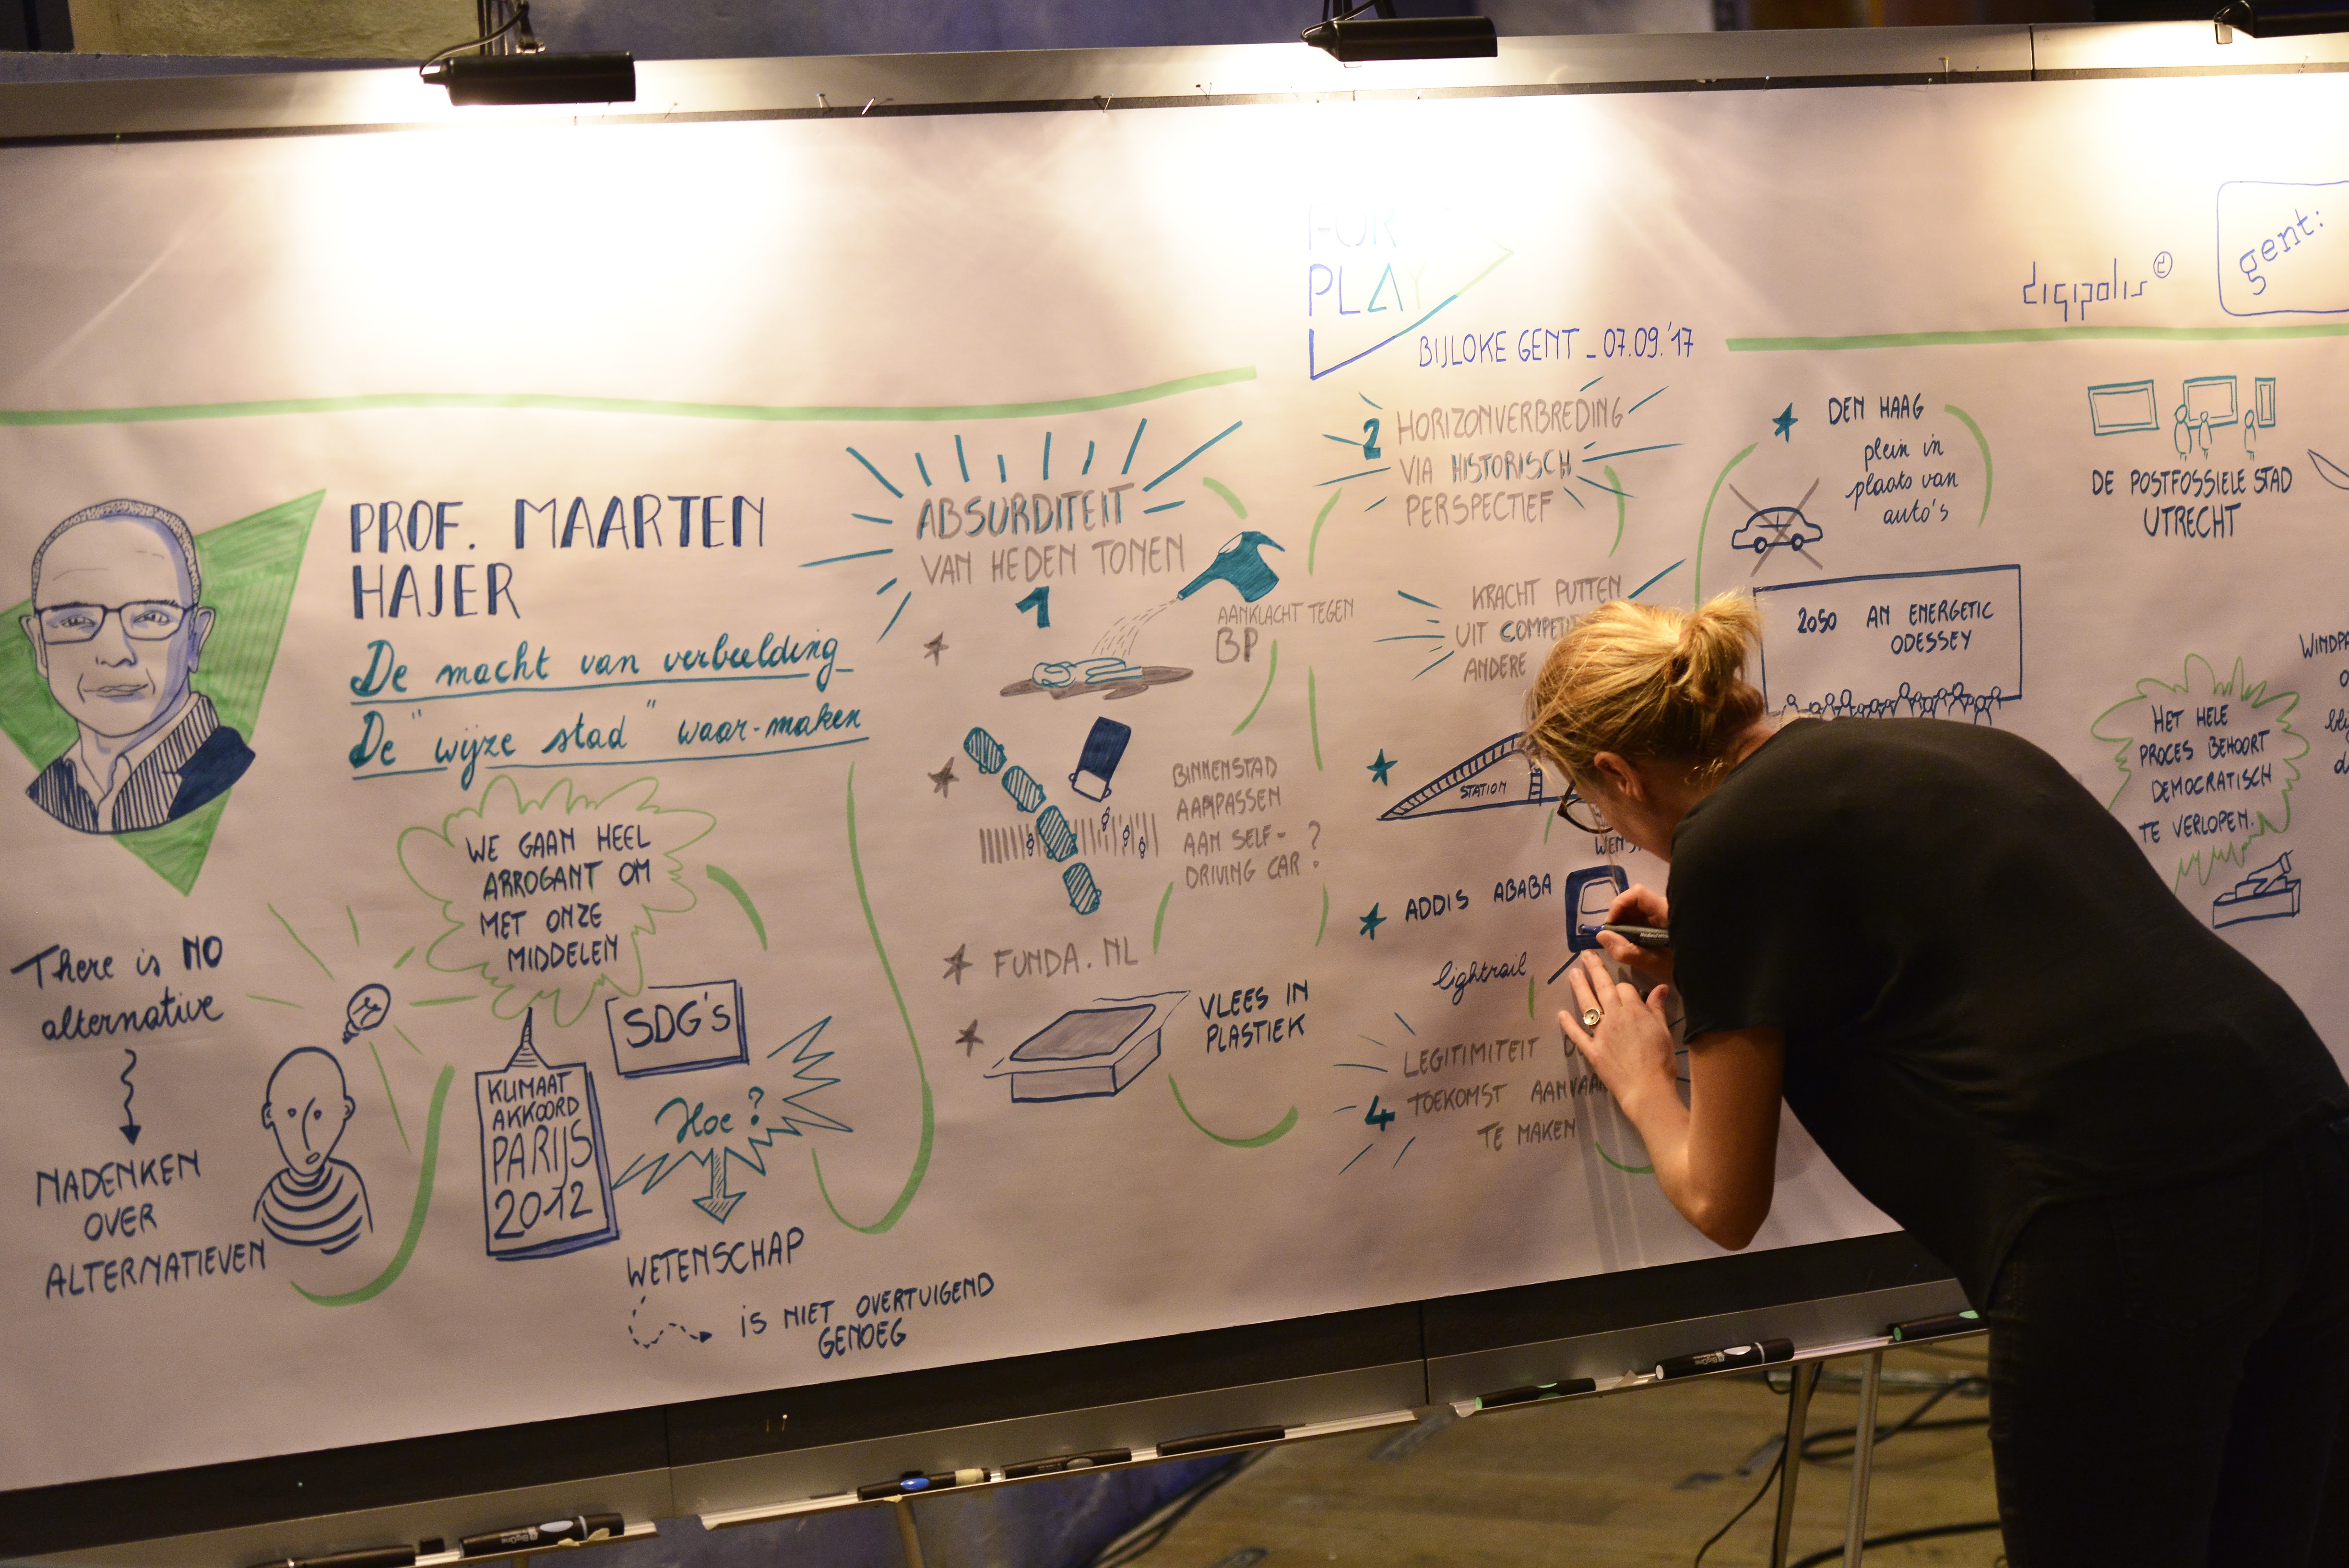 FOR
PLAY
BIJLOKE GENT _ 07.09.'17
digipolis
gent:
PROF. MAARTEN
HAJER
De macht van verbeelding_
De "wijze stad" waar-maken
There is NO
alternative
NADENKEN
OVER
ALTERNATIEVEN
WE GAAN HEEL
ARROGANT OM
MET ONZE
MIDDELEN
SDG'S
KLIMAAT
AKKOORD
PARIJS
2012
Hoe?
WETENSCHAP
IS NIET OVERTUIGEND
GENOEG
ABSURDITEIT
VAN HEDEN TONEN
1
AANKLACHT TEGEN
BP
BINNENSTAD
AANPASSEN
AAN SELF-
DRIVING CAR?
FUNDA.NL
VLEES IN
PLASTIEK
2 HORIZONVERBREDING
VIA HISTORISCH
PERSPECTIEF
KRACHT PUTTEN
UIT COMPETIT
ANDERE
STATION
ADDIS ABABA
lightrail
LEGITIMITEIT
4 TOEKOMST AANVAAR
TE MAKEN
DEN HAAG
plein in
plaats van
auto's
2050 AN ENERGETIC
ODESSEY
DE POSTFOSSIELE STAD
UTRECHT
HET HELE
PROCES BEHOORT
DEMOCRATISCH
TE VERLOPEN.
WINDPA